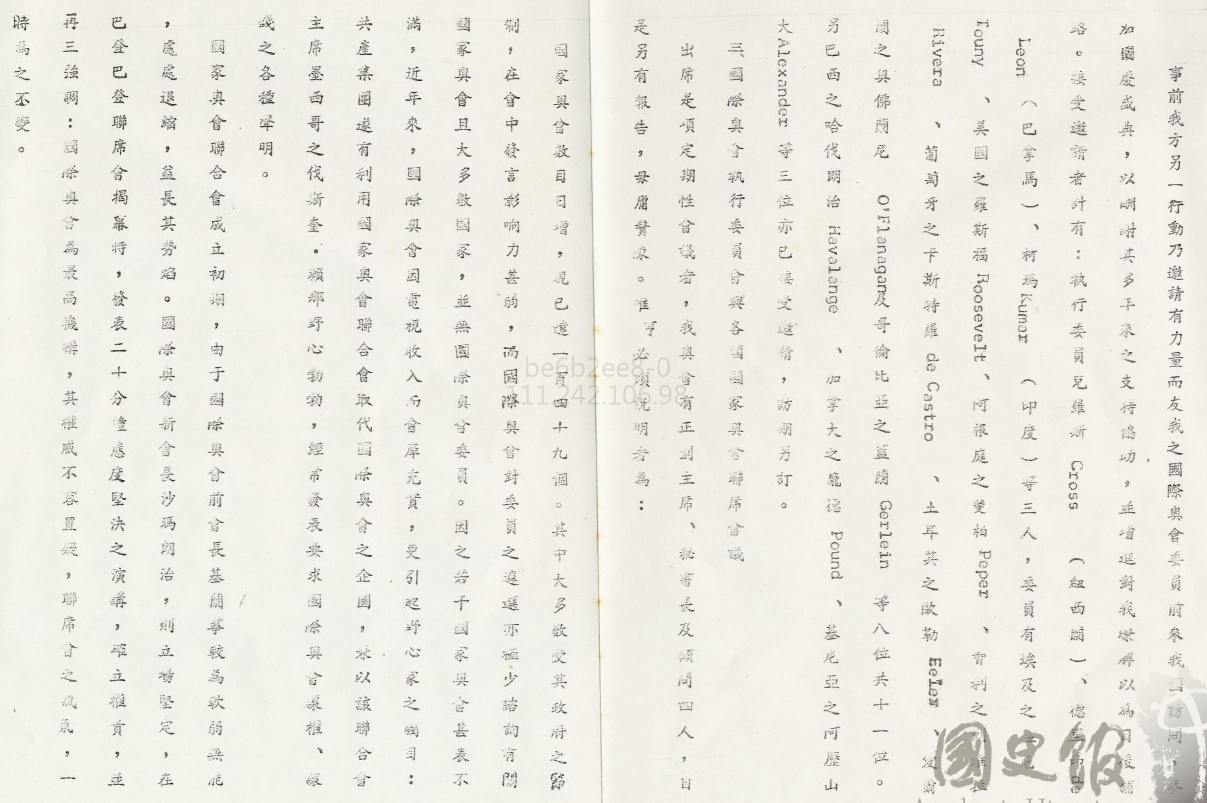 事前我方另一行動乃邀請有力量而友我之國際奧會委員前來我國訪問，
加國慶或典，以酬謝其多年來之支持協助，並增進對我瞭解以為日後鋪
路。接受邀請者計有：執行委員克羅斯 Cross （紐西蘭）、德里昂de
Leon （巴拿馬）、柯瑪Kumar （印度）等三人，委員有埃及之
Touny 、美國之羅斯福Roosevelt、阿根庭之斐柏Peper 、智利之 維拉
Rivera 、葡萄牙之卡斯特羅 de Castro 、土耳其之歐勒 Eeler 、愛爾
蘭之奧佛蘭尼 O'Flanagan及哥倫比亞之蓋蘭 Gerlein 等八位共十一位。
另巴西之哈伐朗治 Havalange 、加拿大之龐德 Pound 、基尼亞之阿歷山
大Alexander 等三位亦已接受邀請，訪期另訂。
三、國際奧會執行委員會與各國國家奧會聯席會議
出席是項定期性會議者，我奧會有正副主席、秘書長及顧問四人，自
是另有報告，毋庸贅象。惟 亨 必須說明者為：
國家奧會數目日增，現已達一百四十九個。其中大多數受其政府之箝
制，在會中發言影响力甚弱，而國際奧會對委員之遴選亦極少諮詢有關
國家奧會且大多數國家，並無國際奧會委員。因之若干國家奧會甚表不
滿，近年來，國際奧會因電視收入而會庫充實，更引起野心家之矚目：
共產集團遂有利用國家奧會聯合會取代國際奧會之企圖，兼以該聯合會
主席墨西哥之伐斯奎．賴那野心勃勃，經常發表要求國際奧會讓權、讓
錢之各種聲明。
國家奧會聯合會成立初期，由于國際奧會前會長基蘭寧較為軟弱無能
，處處退縮，益長其勢焰。國際奧會新會長沙瑪朗治，則立場堅定，在
巴登巴登聯席會揭幕時，發表二十分鐘態度堅決之演講，確立權責，並
再三強調：國際奧會為最高機構，其權威不容置疑，聯席會之氣氛，一
時為之不變。
be6b2ee8-0
111.242.106.98
國史館